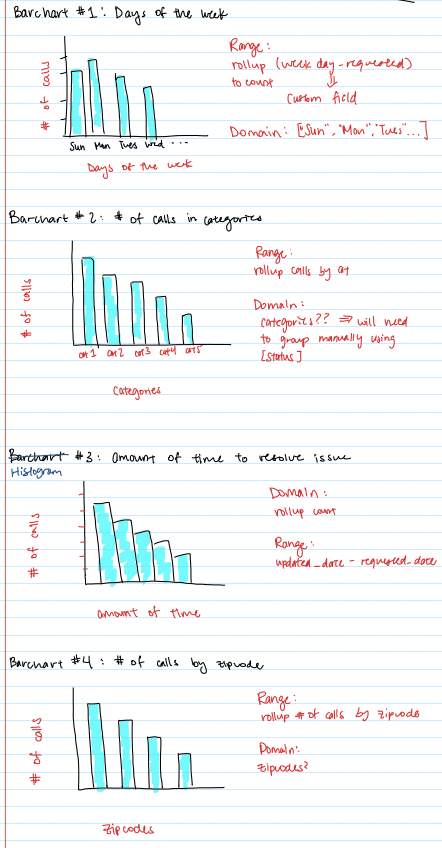 Barchart #1: Days of the week
# of calls
Sun Mon Tues Wed ...
Days of the week
Range:
rollup (week day-requested)
to count
⇓
custom field
Domain: ["Sun", "Mon", "Tues"...]
Barchart #2: # of calls in categories
# of calls
cat 1 cat 2 cat 3 cat 4 cat 5
categories
Range:
rollup calls by cat
Domain:
categories?? ⇒ will need
to group manually using
[status]
Barchart #3: Amount of time to resolve issue
Histogram
# of calls
amount of time
Domain:
rollup count
Range:
updated_date - requested_date
Barchart #4: # of calls by zipcode
# of calls
zipcodes
Range:
rollup # of calls by zipcode
Domain:
zipcodes?